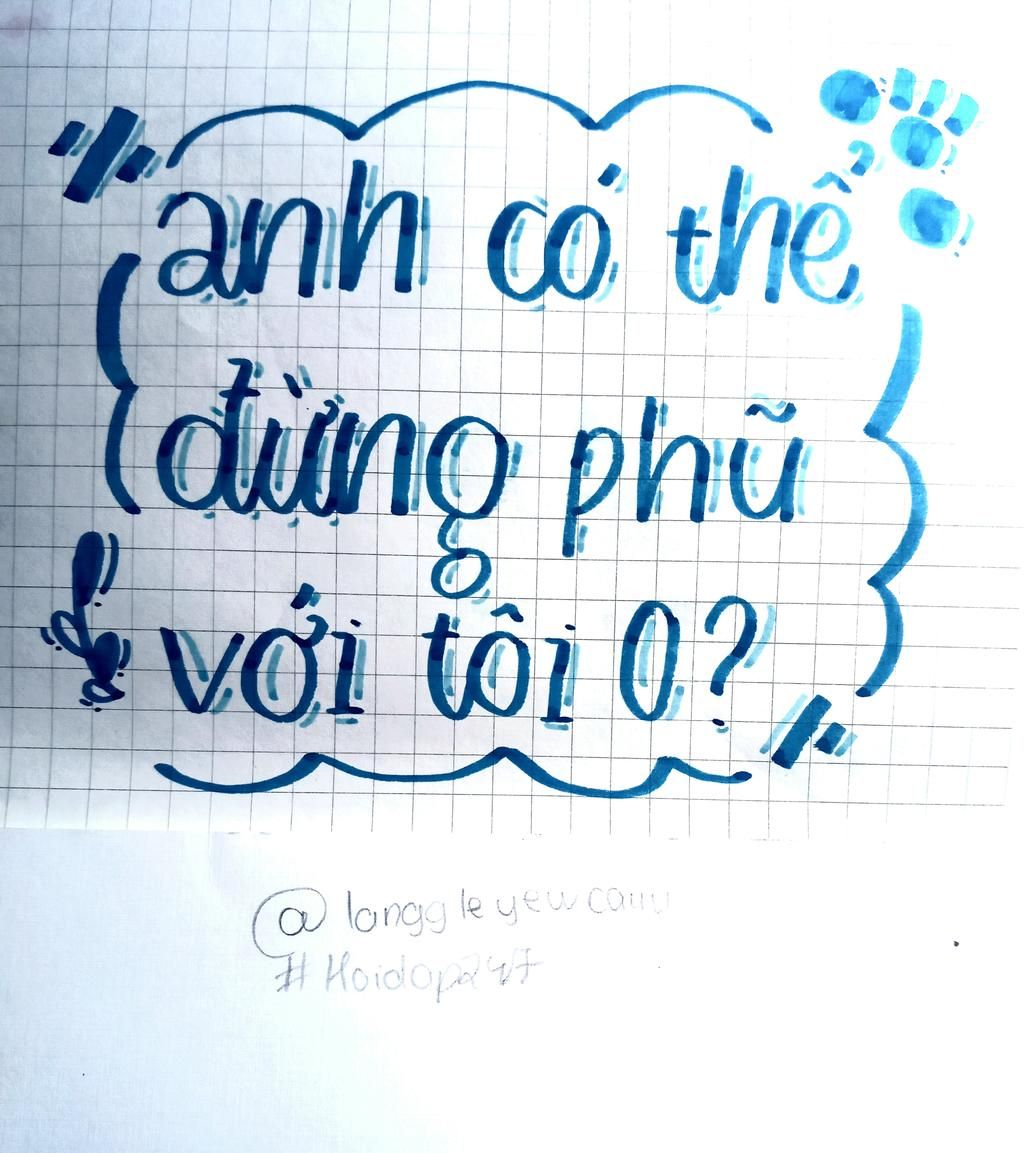 anh có thể
đừng phũ
với tôi 0?
@langgleyewcauu
#Hoidap247